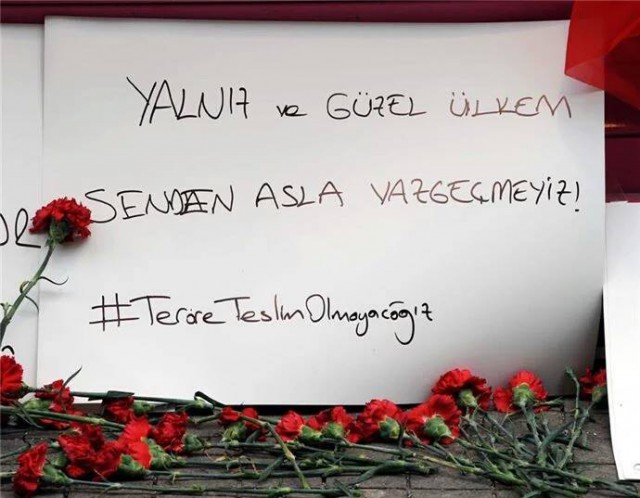 YALNIZ ve GÜZEL ÜLKEM
SENDEN ASLA VAZGEÇMEYİZ!
#TeröreTeslimOlmayacağız